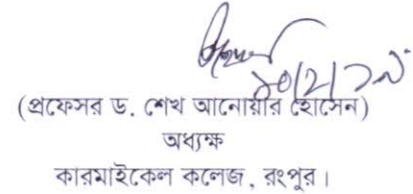 (প্রফেসর ড. শেখ আনোয়ার হোসেন)
অধ্যক্ষ
কারমাইকেল কলেজ, রংপুর।